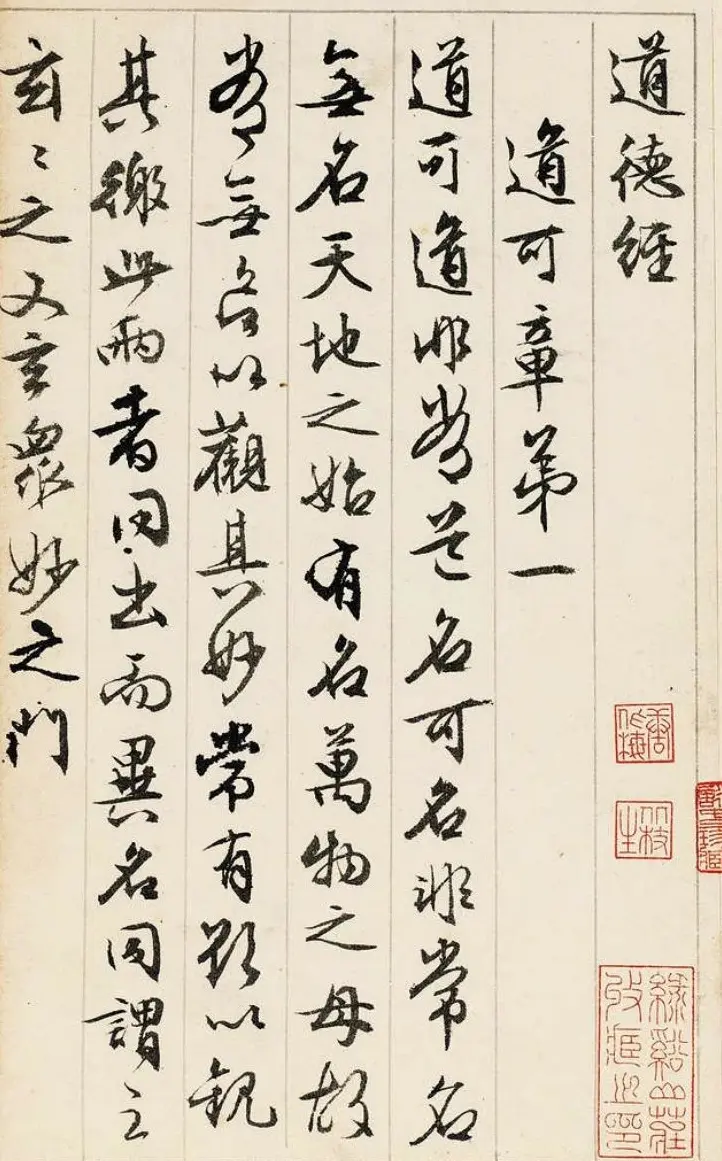 道德經
道可章第一
道可道非常道名可名非常名
無名天地之始有名萬物之母故
常無欲以觀其妙常有欲以觀
其徼此兩者同出而異名同謂之
玄〻之又玄衆妙之門
綠谿山莊